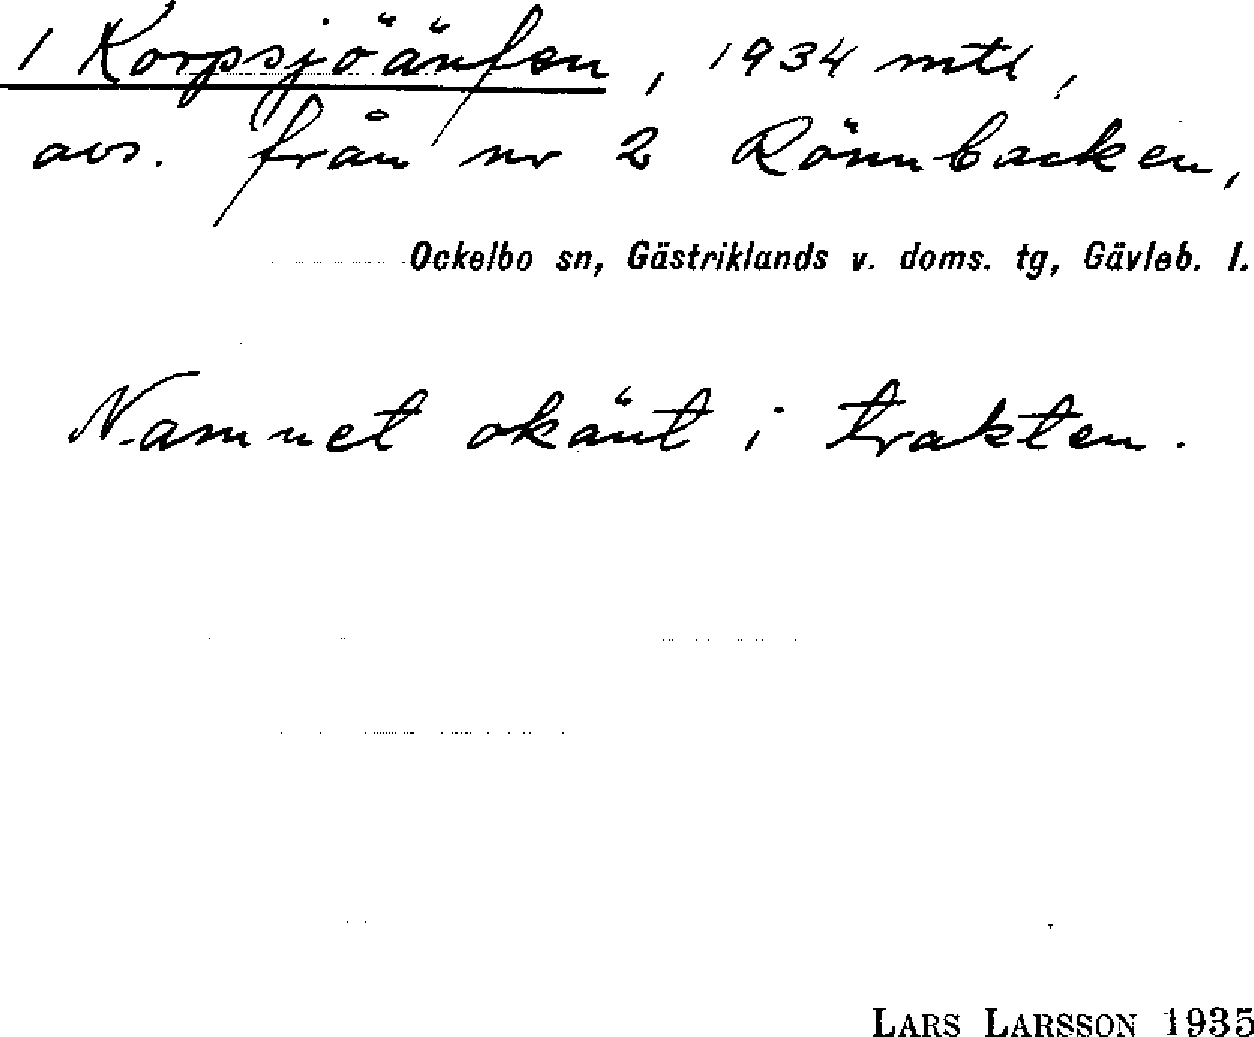 1 Korpsjöänfen, 1934 mtl,
avs. från nr 2 Rönnbacken,
Ockelbo sn, Gästriklands v. doms. tg, Gävleb. l.
Namnet okänt i trakten.
LARS LARSSON 1935